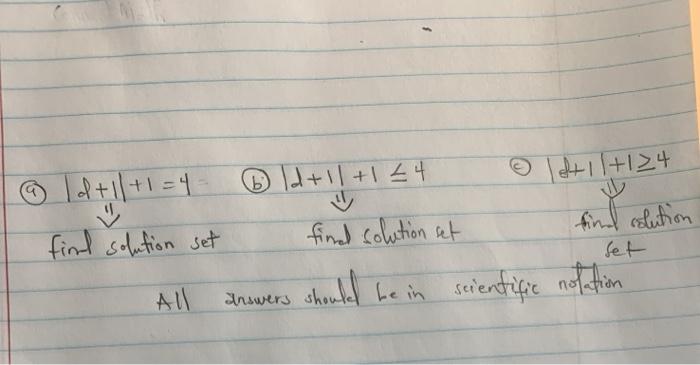 ⓐ |d+1|+1=4 ⓑ |d+1|+1≤4 ⓒ |d+1|+1≥4
find solution set find solution set find solution set
All answers should be in scientific notation